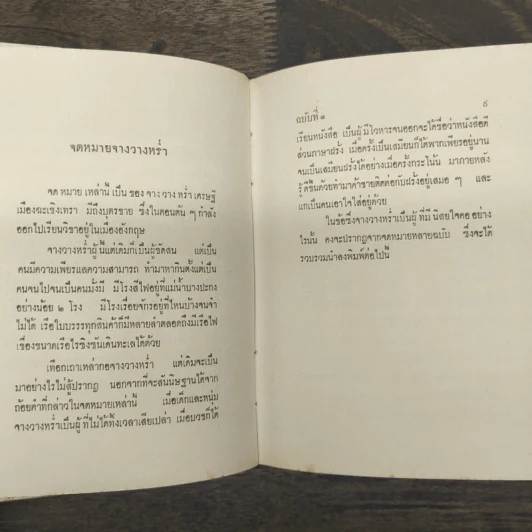 จดหมายจางวางหร่ำ
จดหมายเหล่านี้ เป็นของ จางวางหร่ำ เศรษฐี
เมืองฉะเชิงเทรา มีถึงบุตรชาย ซึ่งในตอนต้น ๆ กำลัง
ออกไปเรียนวิชาอยู่ในเมืองอังกฤษ
จางวางหร่ำผู้นี้แต่เดิมก็เป็นผู้ขัดสน แต่เป็น
คนมีความเพียรแลความสามารถ ทำมาหากินตั้งแต่เป็น
คนจนไปจนเป็นคนมั่งมี มีโรงสีไฟอยู่ที่แม่น้ำบางปะกง
อย่างน้อย ๒ โรง มีโรงเรื่อยจักรอยู่ที่ไหนบ้างจนจำ
ไม่ได้ เรือใบบรรทุกสินค้าก็มีหลายลำตลอดถึงมีเรือไฟ
เขื่องขนาดเรือไรซิงซันเดินทะเลได้ด้วย
เทือกเถาเหล่ากอจางวางหร่ำ แต่เดิมจะเป็น
มาอย่างไรไม่สู้ปรากฏ นอกจากที่จะสันนิษฐานได้จาก
ถ้อยคำที่กล่าวในจดหมายเหล่านี้ เมื่อเด็กและหนุ่ม
จางวางหร่ำเป็นผู้ที่ไม่ได้ทิ้งเวลาเสียเปล่า เมื่อบวชก็ได้
ฉบับที่ ๑
๕
เรียนหนังสือ เป็นผู้มีโวหารจนออกจะได้ชื่อว่าหนังสือดี
ส่วนภาษาฝรั่ง เมื่อครั้งเป็นเสมียนก็ได้พากเพียรอยู่นาน
จนเป็นเสมียนฝรั่งได้อย่างเมื่อครั้งกระโน้น มาภายหลัง
รู้ดีขึ้นด้วยทำมาค้าขายติดต่อกับฝรั่งอยู่เสมอ ๆ และ
แก่เป็นคนเอาใจใส่อยู่ด้วย
ในข้อซึ่งจางวางหร่ำเป็นผู้ที่มีนิสัยใจคออย่าง
ไรนั้น คงจะปรากฏจากจดหมายหลายฉบับ ซึ่งจะได้
รวบรวมนำลงพิมพ์ต่อไปนี้